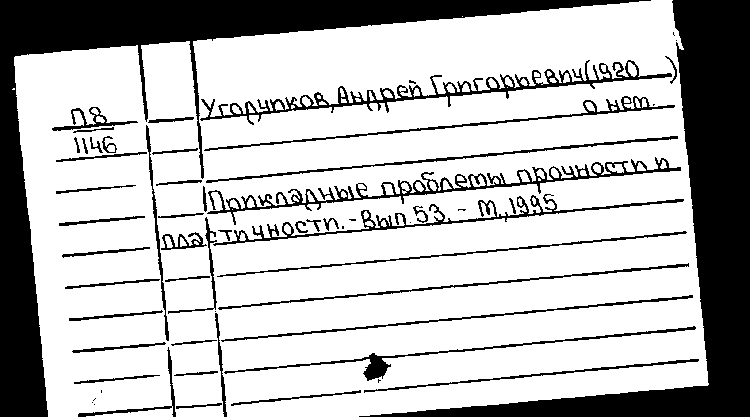 П8
1146
Угодчиков, Андрей Григорьевич (1920 )
о нем.
Прикладные проблемы прочности и
пластичности. - Вып. 53. - М., 1995